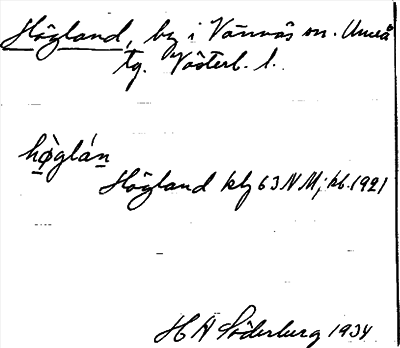 Högland, by i Vännäs sn. Umeå
tg. Västerb. l.
hø̀glán
Högland blz 63 NV; kb. 1921
H A Söderberg 1934